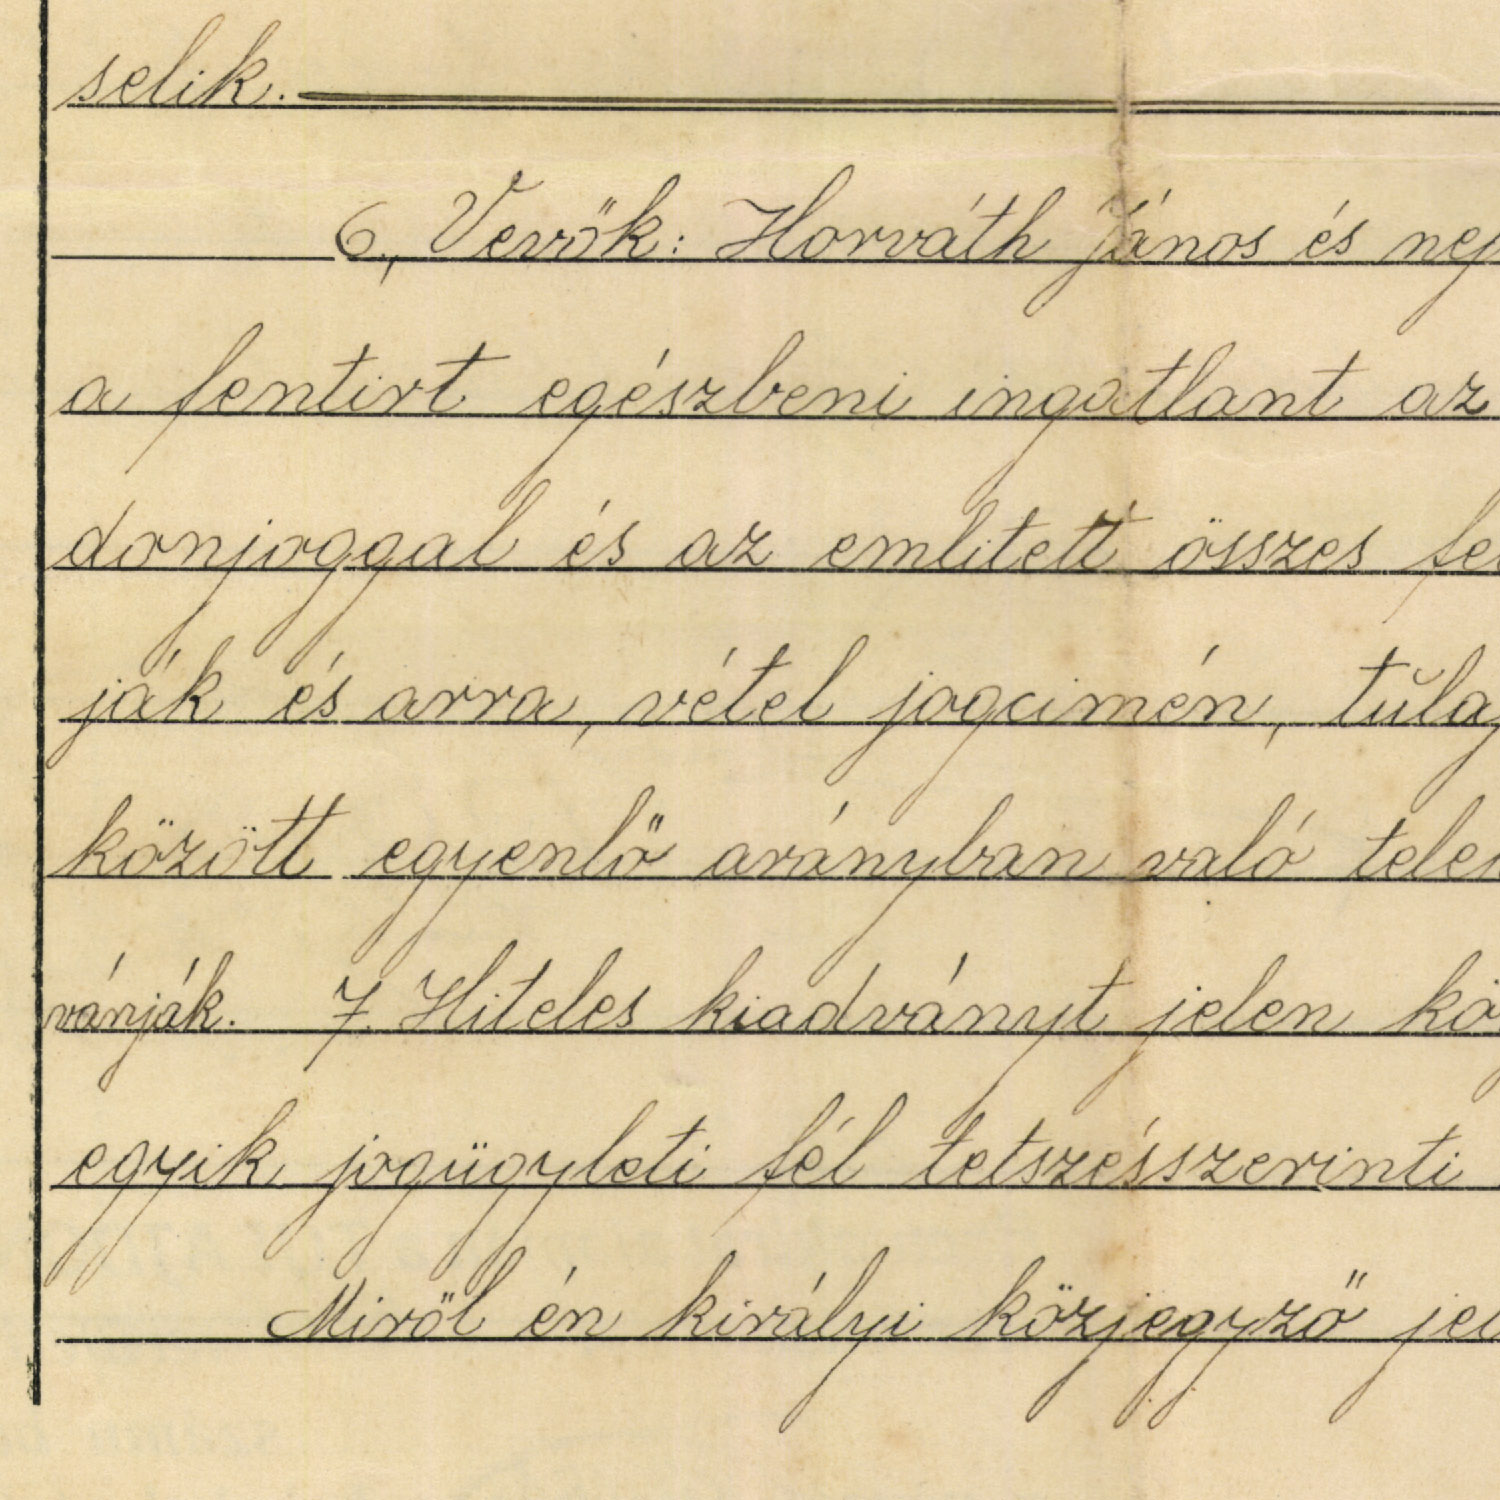 selik.
6., Vevők: Horváth János és nej
a fentirt egészbeni ingatlant az
donjoggal és az emlitett összes fe
ják és arra, vétel jogcimén, tula
között egyenlő arányban való tele
vánják. 7. Hiteles kiadványt jelen kö
egyik jogügyleti fél tetszésszerinti
Miről én királyi közjegyző jel